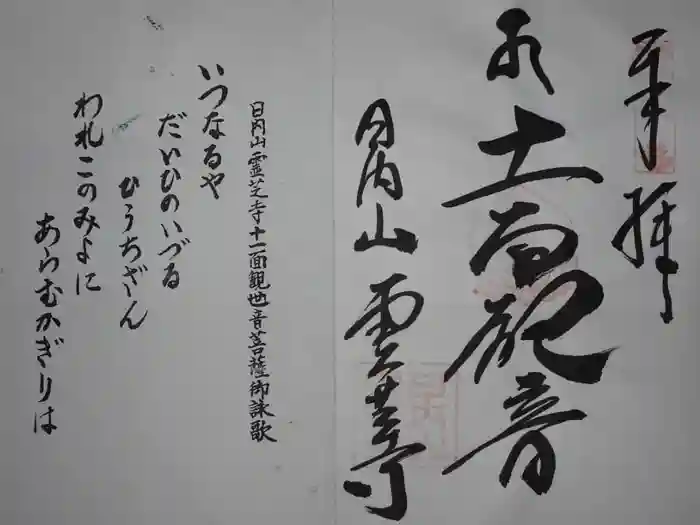 奉拝
十一面観音
日内山 霊芝寺
日内山霊芝寺十一面観世音菩薩御詠歌
いつなるや
だいひのいづる
ひうちざん
われこのみよに
あらむかぎりは